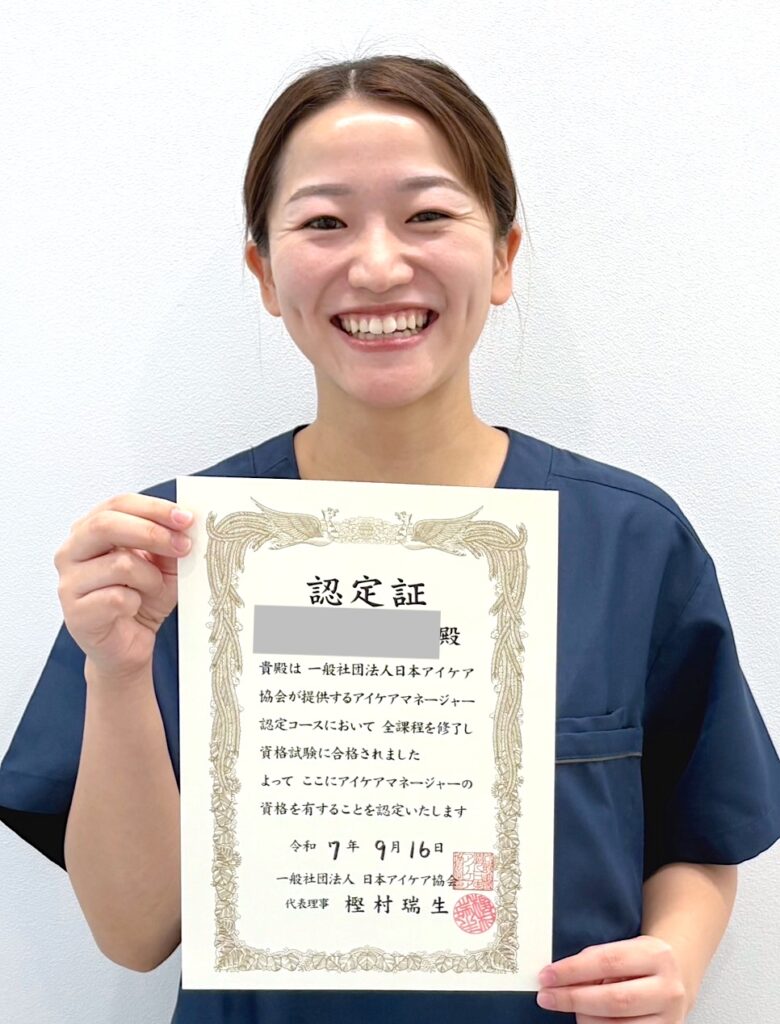 認定証
殿
貴殿は 一般社団法人日本アイケア
協会が提供するアイケアマネージャー
認定コースにおいて 全課程を修了し
資格試験に合格されました
よって ここにアイケアマネージャーの
資格を有することを認定いたします
令和 7年 9月 16日
一般社団法人 日本アイケア協会
代表理事 樫村瑞生